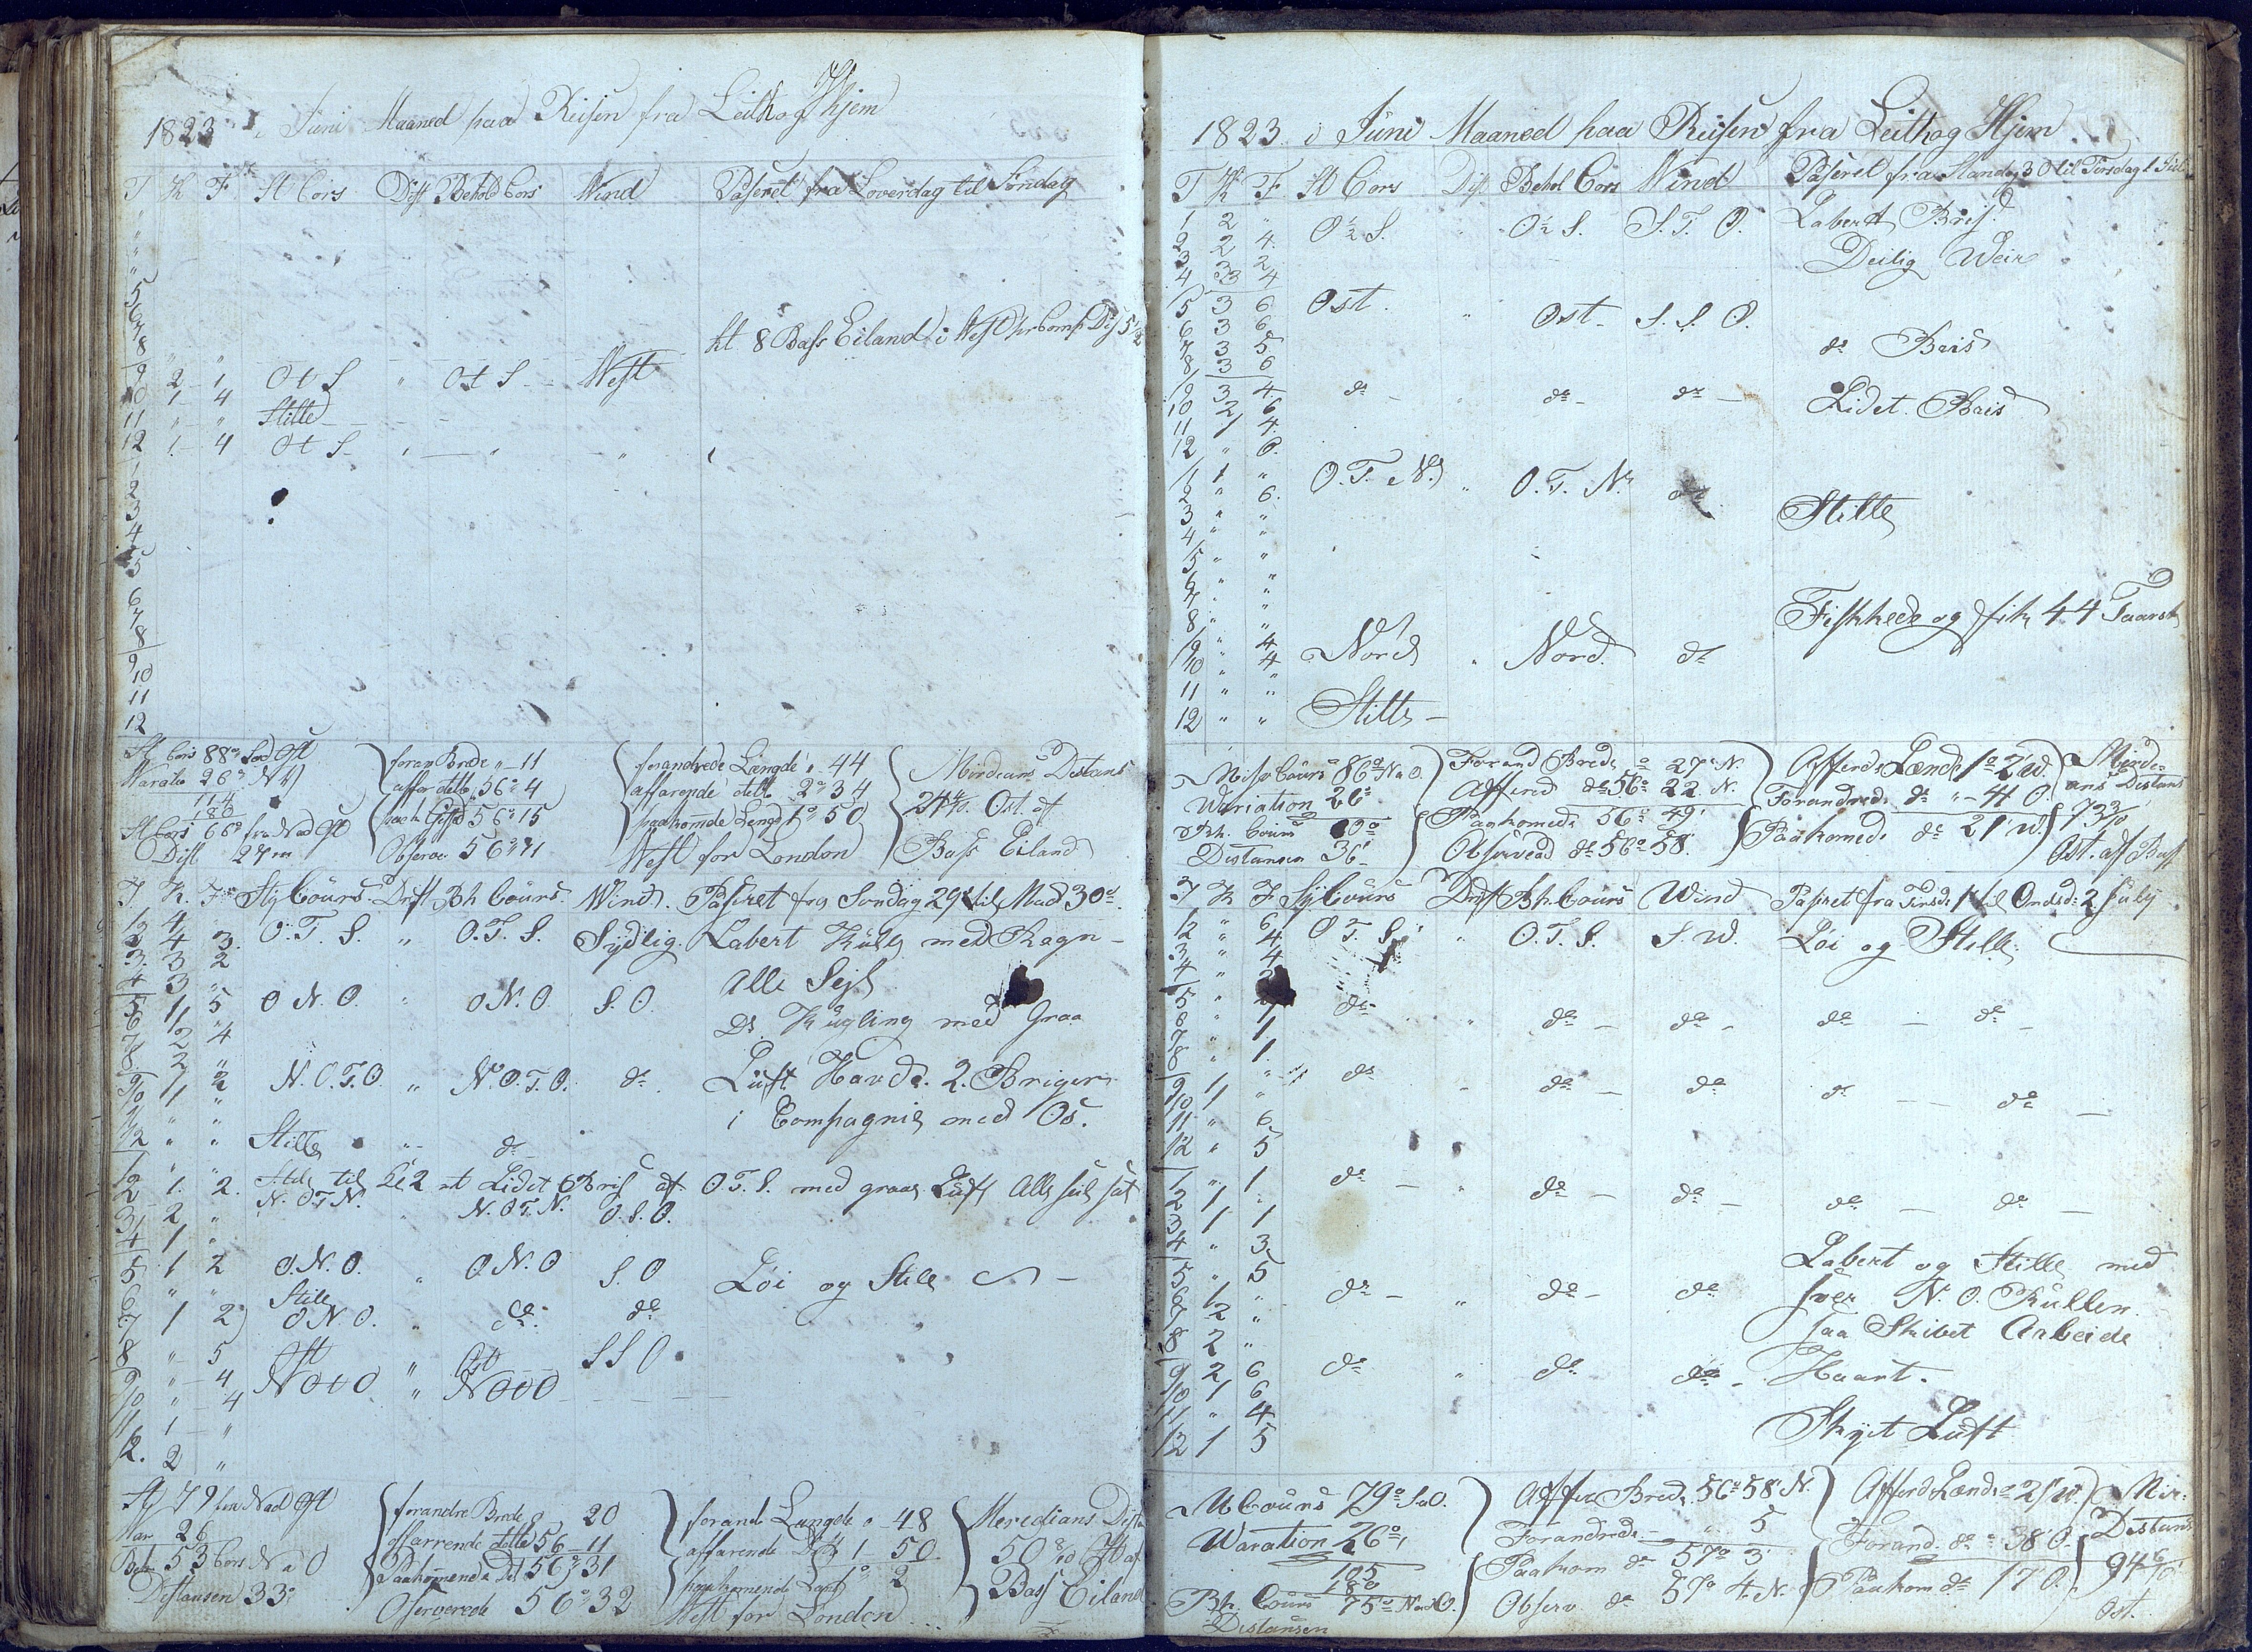 1823 i Juni Maaned paa Reisen fra Leith og Hjem
T K F St Cors Dist Behold Cors Wind Paseret fra Loverdag til Söndag
"
"
"
"
5
6
7
8 " " kl 8 Bass Eiland i West pr Comp Dis 5 1/2
9 2 - 1 Ot S " Ot S - West
10 1 - 4
11 " - " Stille
12 1 - 4 Ot S - " "
1
2
3
4
5
6
7
8
9
10
11
12
St Cors 88° Sød Ost foran Brede " - 11 forandrede Længde " 44 Mirdians Distans
Waratio 26° NW affar dette 56° 4 affarende dette 2° 34 24 4/10 Ost af
114
180
St Cors 66° fra Nad Ost paak Gissd 56° 15 paakomde Lengd 1° 50
Dist 27 m Observe 56° 11 West for London Bass Eiland
T. K. F. Sty Cours Drift Bh Cours. Wind. Paseret fra Sondag 29 til Mad 30d
1 4
2 4 3. O. T. S. " O. T. S. Sydlig. Labert Kulle med Ragn -
3. 3 2
4 3 " Alle Sejl
5 1 5 O N. O. " O N. O S. O.
6 1 " Do Kugling med Graa
7 2 4
8 2 " Luft Havde. 2. Briger
9 1 2 N. O. T. O. " N. O. T. O. do
10 1 " i Compagnie med Os.
11 " "
12 " " Stille " do
1 " " Stile til Kl 2 et Lidet Bris af O. T. S. med graae Luft Alle seil sat
2 1. 2. N. OT N. N. OT. N. O. S. O.
3 2 "
4 1 "
5 1 2 O. N. O. " O. N. O S. O Löi og Stile
6 " " Stile
7 1 2 O N O. " do. do
8 " - 5 Ost " Ost S S O
9 " - 4 N O t O " N O t O
10 " - 4
11 1 - "
12. 2 "
St 79 fra Nad Ost forandre Brede " 20 forand Længde " - 48 Meredians Dista
War 26 affarrende dette 56 - 11 affarende Dito 1 - 50
Beh 53 Cors N a O Paakommende Det 56° 31 paakomende Læng° 2 Bass Eiland
Distansen 33' Observerede 56° 32 West for London
1823 i Juni Maaned paa Reisen fra Leith og Hjem
T K F St Cors Dis. Behol Cors Wind Paseret fra Mandag 30 til Tirsdag 1 Juli
1 2 " O ½ S. " O ½ S. S. T. O. Labert Bris
2 2 4.
3 3 2 Deilig Weir
4 3 4
5 3 6 Ost. " Ost - S. S. O.
6 3 6
7 3 5 do Bris
8 3 6
9 3 4. do - " do - do - Lidet Bris
10 2 6
11 1 4.
12 " 6.
1 1 " O. T. N. " O. T. N. do
2 " 6. Stille
3 " "
4 " "
5 " "
6 " "
7 " " Fiskhede og fik 44 Taarsk
8 " "
9 " 4 Nord " Nord. do
10 " 4
11 " "
12 " " Stille -
Misv Cours 86° N a O. Forand Brede ° 27' N. Afferd Længde 1° 2' W. Mirde-
Wariation 26° Afferd do 56° 22 N. Forandrede do " - 41 O. ans Distans
Bh. Cours 60° Paakomede 56° 49' Paakomede do 21' W. 73
Distansen 36' Observerd do 56° 58. Ost. af Bass
T K F Sy Cours Drift Bh. Cours Wind Paseret fra Tirsd: 1 til Onsd: 2 July
1 " 6 O T. S " O. T. S. S. W. Löi og Stille
2 " 4
3 " 4
4 "
5 " do " do - do - do - do -
6 " 1
7 " 1.
8 " 1.
9 1 " do " do - do do - do -
10 1 "
11 " 6
12 " 5
1 " 1 do - " do - do - do - do -
2 1 "
3 1 1
4 " 3. Labert og Stille med
5 " 5 do - " do - do svær N. O. Kullen
6 1 "
7 2 " saa Skibet Arbeide
8 2 "
9 2 6 do " do do - Haart.
10 1 6
11 " 4 Skyet Luft
12 1 5
M Cours 79° S a O. Affer Brede. 56° 58' N. Afferd Længde ° 21' W. Mir:
Waration 26° Forandrede - " 5 Forand. do ° 38' O. Distans
105
180 Paakom do 57° 3' Paakom do 17' O. 94 6/10
Bh. Cours 75° N a O. Observ. do 57° 4' N. Ost.
Distansen